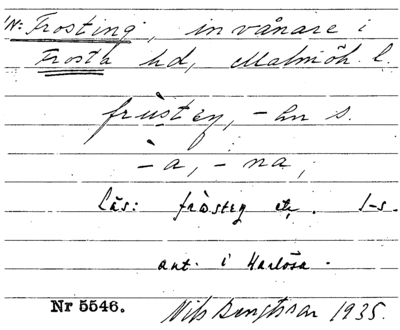 IN: Frosting, invånare i
Frosta hd, Malmöh. l.
frùsteŋ, -ən s.
-a, -na,
Läs: fròsteŋ etc. I-s.
ant. i Harlösa.
Nr 5546. Nils Bengtsson 1935.